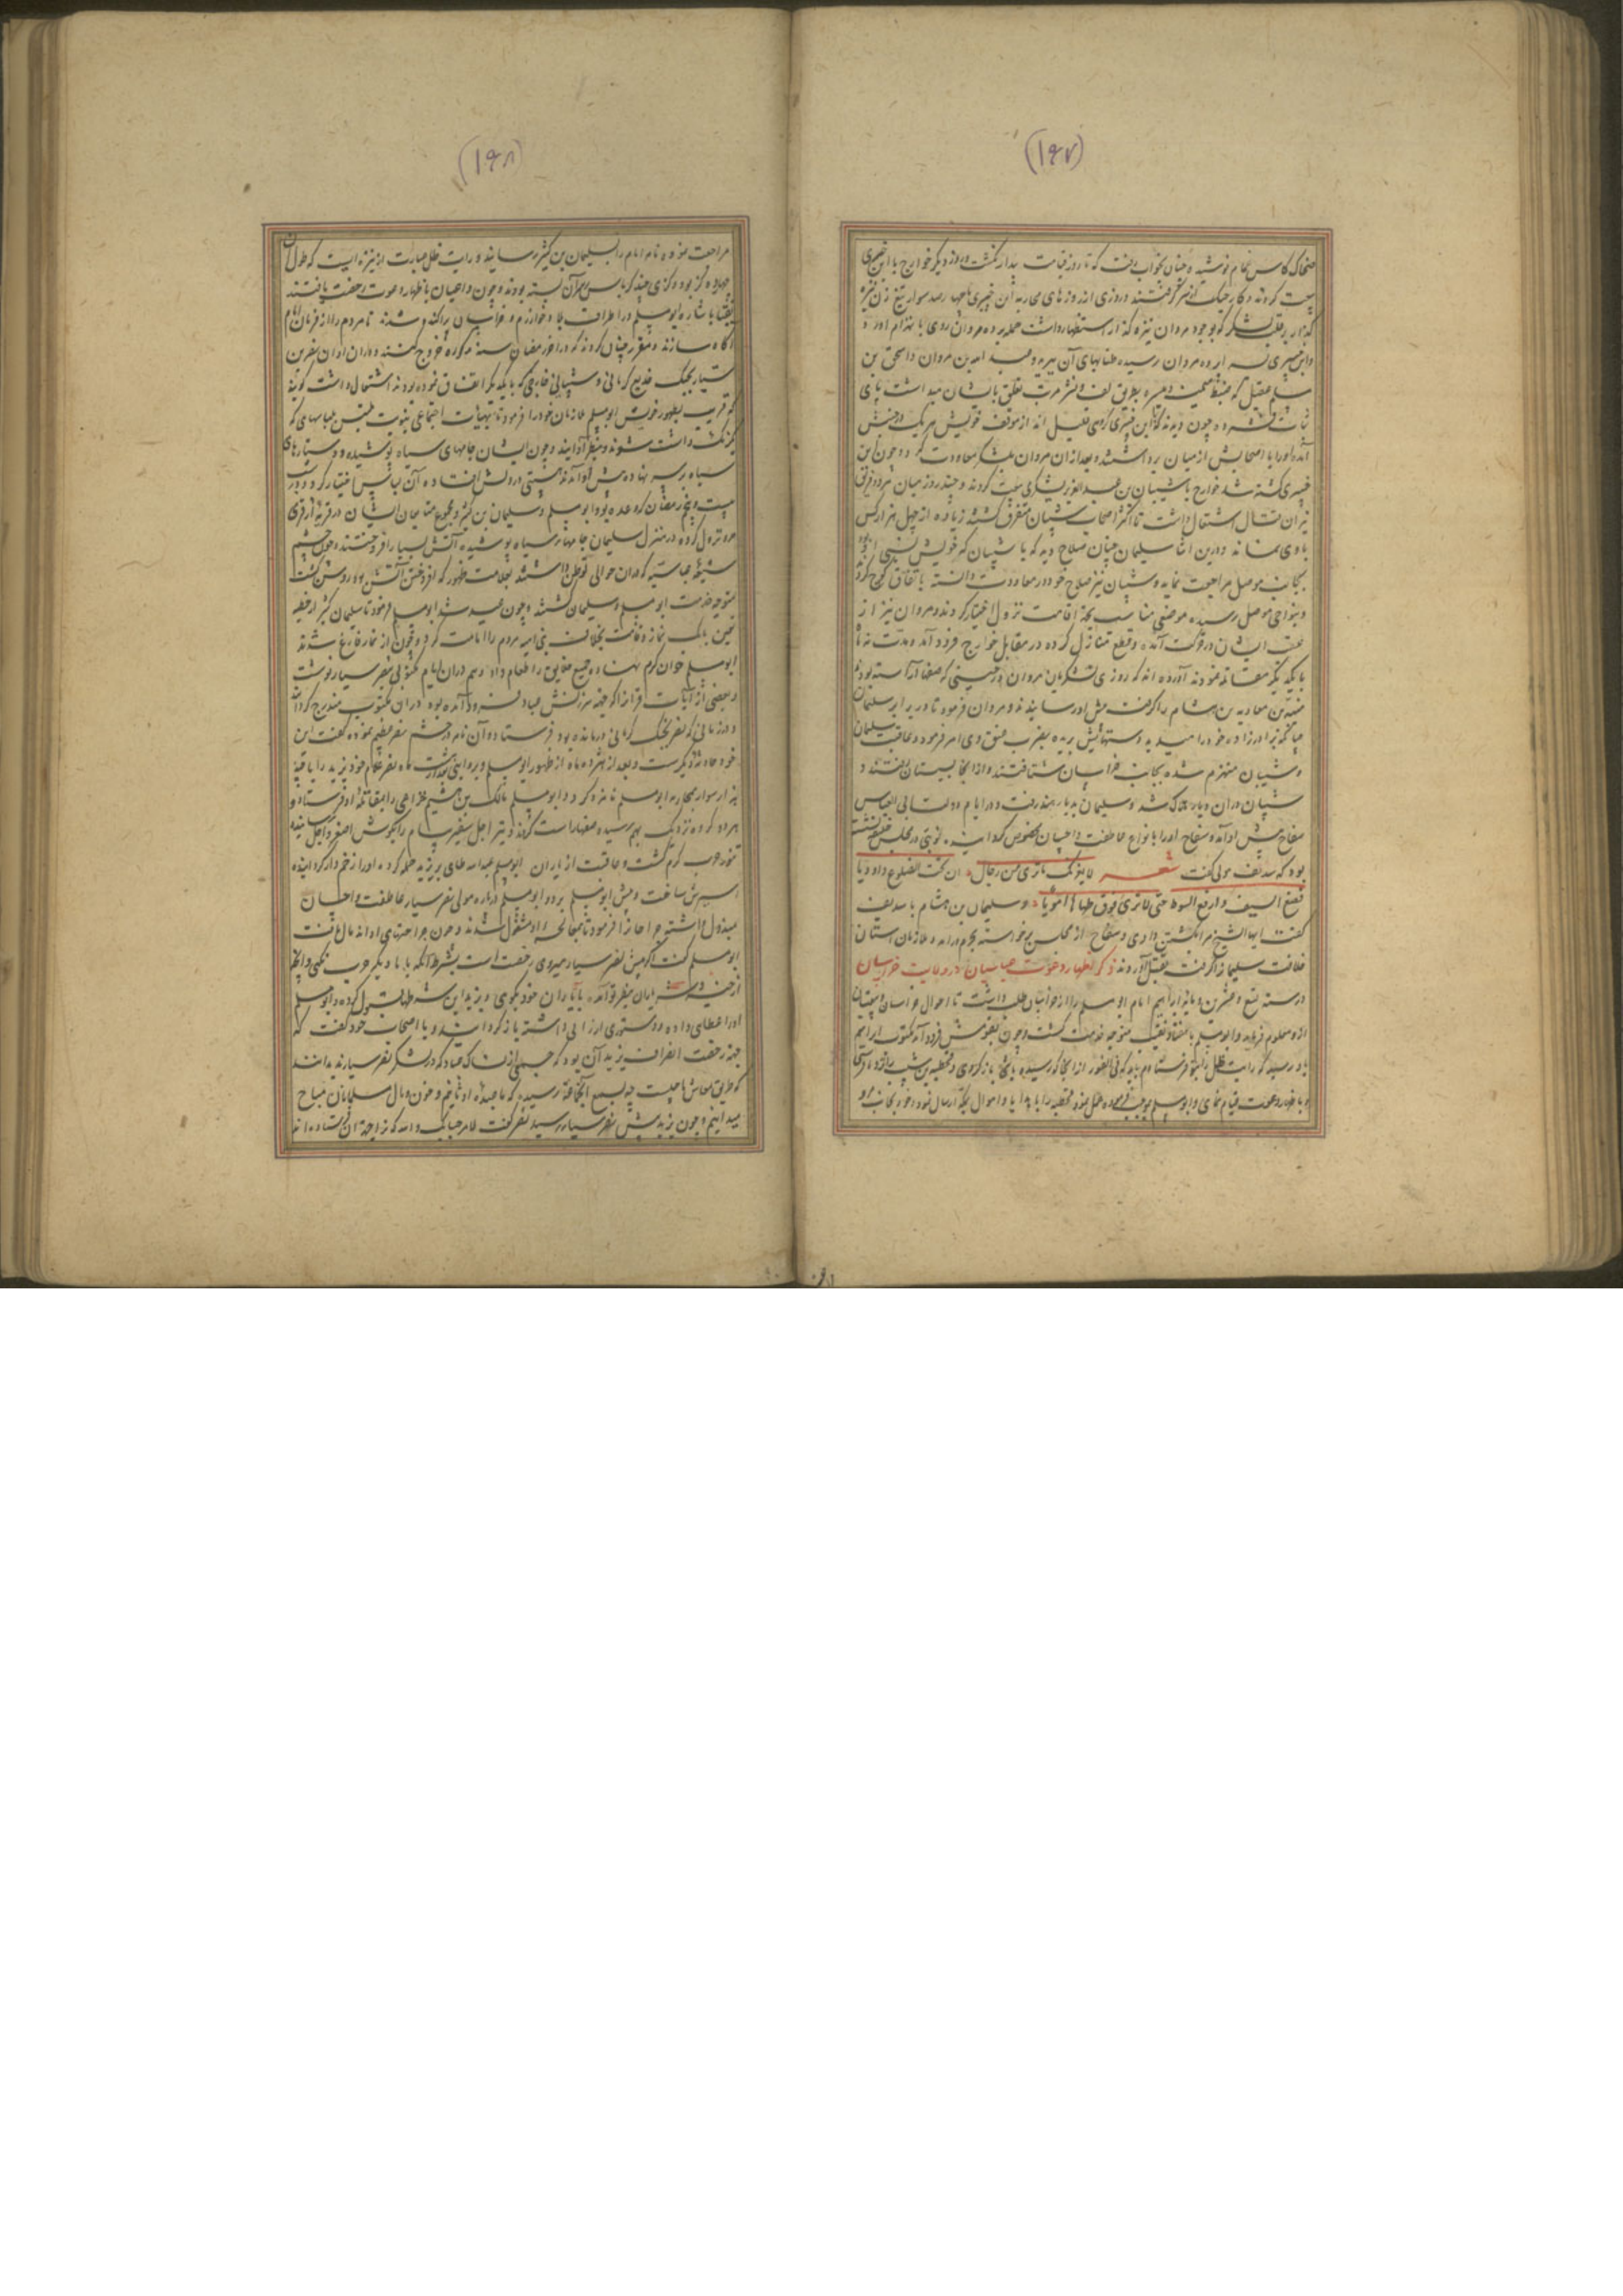 (۱۶۷)
ضحاک کاس حمام نوشیده چنان بخواب رفت که تا روز قیامت بیدار نگشت و روز دیگر خوارج با ابن خیبری
بیعت کردند و کار جنگ از سر گرفتند و روزی از روزهای محاربه ابن خیبری با چهار صد سوار تیغ زن نیزه
گذار بر قلب لشکر که بوجود مروان نیزه گذار استظهار داشت حمله برده مروان روی بانهزام آورد و
وابن خیبری بسراپرده مروان رسیده طنابهای آن ببرید و عبد الله بن مروان و اسحق بن
مسلم عقیلی که ضبط میمنه و میسره بطریق لف و نشر مرتب تعلق بایشان میداشت پای
ثبات فشرده چون دیدند که ابن خیبری با گروهی قلیل اند از موقف خویش هر یک در جنبش
آمده او را با اصحابش از میان برداشتند و بعد از آن مروان بلشکر معاودت کرد و چون ابن
خیبری کشته شد خوارج با شیبان بن عبد العزیز یشکری بیعت کردند و چند روز میان هر دو فریق
نیران قتال اشتعال داشت تا اکثر اصحاب شیبان متفرق گشتند زیاده از چهل هزار کس
با وی نماند و درین اثنا سلیمان چنان صلاح دید که با شیبان که خویش نسبی او بود
بجانب موصل مراجعت نماید و شیبان نیز صلاح خود در معاودت دانسته باتفاق کوچ کردند
و بنواحی موصل رسیده موضعی مناسب بجهة اقامت نزول اختیار کردند و مروان نیز از
عقب ایشان در حرکت آمده و قطع منازل کرده در مقابل خوارج فرود آمد و مدت نه ماه
با یکدیگر مقاتله نمودند آورده اند که روزی لشکریان مروان در حینی که صفها آراسته بودند
بن معاویه بن هشام را گرفته پیش او رسانیدند و مروان فرمود تا در برابر سلیمان
چنانکه برادرزاده خود را میدید دستهایش بریده بضرب عنق وی امر فرمود و عاقبت سلیمان
و شیبان منهزم شده بجانب خراسان شتافتند و از آنجا بسیستان رفتند و
شیبان در آن دیار هلاک شد و سلیمان بدیار هند رفت و در ایام دولت ابی العباس
سفاح پیش او آمد و سفاح او را بانواع عاطفت و احسان مخصوص گردانید نوبتی در مجلس خلیفه نشسته
بود که سدیف مولی گفت شعر لا یغرنک ما تری من رجال ان تحت الضلوع داء دویا
فضع السیف و ارفع السوط حتی لا تری فوق ظهرها امویا و سلیمان بن هشام با سدیف
گفت ایها الشیخ مرا بکشتن دادی و سفاح از مجلس برخواسته بحرم درآمد و ملازمان آستان
خلافت سلیمان را گرفته بقتل آوردند ذکر اظهار دعوت عباسیان در ولایت خراسان
در سنه تسع و عشرین و مائة ابراهیم امام ابو مسلم را از خراسان طلب داشت تا احوال خراسان و شیعیان
ازو معلوم فرماید و ابو مسلم با هفتاد نقیب متوجه خدمت گشت و چون بقومش فرود آمد مکتوب ابراهیم
باو رسید که رایت ظل را بتو فرستادم باید که فی الفور از آنجا که رسیده باشی باز گردی و قحطبه بن شبیب را نزد ما فرستی
و باظهار دعوت قیام نمای و ابو مسلم بموجب فرموده عمل نموده قحطبه را با هدایا و اموال بمکه ارسال نمود و خود بجانب مرو
(۱۶۸)
مراجعت نموده نامه امام را بسلیمان بن کثیر رسانید و رایت ظل عبارت از نیزه ایست که طول آن
چهارده گز بود و گزی چند کرباس بر سر آن بسته بودند و چون داعیان باظهار دعوت رخصت یافتند
نقبا باشاره ابو مسلم در اطراف بلاد خوارزم و خراسان پراکنده شدند تا مردم را از فرمان امام
آگاه سازند و مقرر چنان کردند که در آخر رمضان سنه مذکوره خروج کنند و در آن اوان نصر بن
سیار بجنگ جدیع کرمانی و شیبانی خارجی که با یکدیگر اتفاق نموده بودند اشتغال داشت گویند
که قریب بظهور خویش ابو مسلم ملازمان خود را فرمود تا بهیئات اجتماعی بنوبت ملبس بلباسهای که
یکرنگ داشت شوند و بنظر او درآیند و چون ایشان جامهای سیاه پوشیده و دستارهای
سیاه بر سر نهاده پیش او آمدند هیبتی در دلش افتاده آن لباس اختیار کرد و در شب
بیست و پنجم رمضان که وعده بود ابو مسلم و سلیمان بن کثیر و مجموع متابعان ایشان در قریه از قری
مرو نزول کرده در منزل سلیمان جامهاء سیاه پوشیده آتش بسیار افروختند و چون چشم
شیعه عباسیه که در آن حوالی توطن داشتند بعلامت ظهور که افروختن آتش بود روشن گشت
متوجه خدمت ابو مسلم و سلیمان گشتند و چون عید شد ابو مسلم فرمود تا سلیمان کثیر از خطبه
بی بانگ نماز و قامت بخلاف بنی امیه مردم را امامت کرد و چون از نماز فارغ شدند
ابو مسلم خوان کرم نهاده جمیع خلایق را طعام داد و هم در آن ایام مکتوبی بنصر سیار نوشت
و بعضی از آیات قرآن را که جهة سرزنش عباد فرود آمده بود در آن مکتوب مندرج گرداند
و در زمانی که نصر بجنگ کرمانی درمانده بود فرستاد و آن نامه در چشم نصر عظیم نموده گفت این
خود حادثه دیگرست و بعد از هژده ماه از ظهور ابو مسلم و بروایتی بعد از هشت ماه نصر غلام خود یزید را با ده
هزار سوار بمحاربه ابو مسلم نامزد کرد و ابو مسلم مالک بن هیثم خزاعی را بمقاتله او فرستاد و
هر دو گروه نزدیک بهم رسیده صفها راست کردند و تیر اجل سفیر پیام را بگوش اصغر و اجل رسانیده
تنور حرب گرم گشت و عاقبت از یاران ابو مسلم عبد الله طایی بر یزید حمله کرده او را از زخم دار گردانیده
اسیرش ساخت و پیش ابو مسلم برد و ابو مسلم درباره مولی نصر سیار عاطفت و احسان
مبذول داشته جراحان را فرمود تا بمعالجه او مشغول شدند و چون جراحتهای او اندمال یافت
ابو مسلم گفت اگر پیش نصر سیار میروی رخصت است بشرط آنکه با ما دیگر حرب نکنی و آنچه
از حسن سیرت یاران بنظر تو آمده با یاران خود بگوی و یزید این شرطها قبول کرده و ابو مسلم
او را عطای داده و دستوری ارزانی داشته باز گردانید و با اصحاب خود گفت که
جهة رخصت انصراف یزید آن بود که جمعی از نساک و عباد که در لشکر نصر سیارند بدانند
که طریق معاش ما چیست چه بسمع آنجماعة رسیده که ما عبده اوثانیم و خون و مال مسلمانان مباح
میدانیم و چون یزید پیش نصر سیار رسید نصر گفت لا مرحبا بک والله که ترا جهة آن فرستاده اند